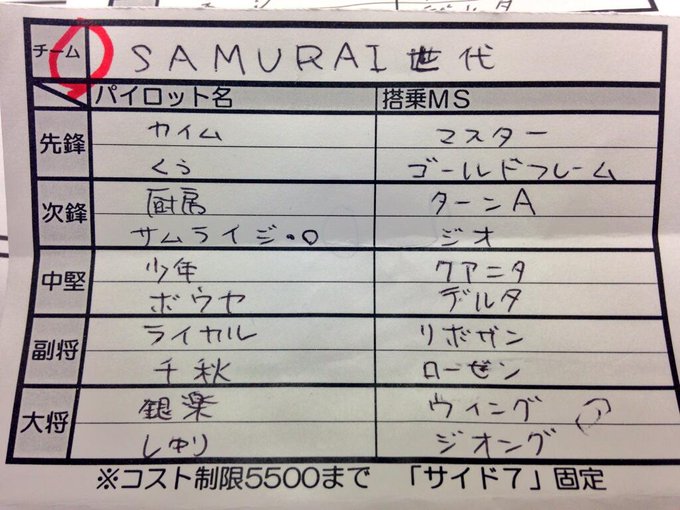 チーム SAMURAI世代
パイロット名 搭乗MS
先鋒
カイム マスター
くぅ ゴールドフレーム
次鋒
厨房 ターンA
サムライジ・O ジオ
中堅
少年 クアンタ
ボウヤ デルタ
副将
ライカル リボガン
千秋 ローゼン
大将
銀楽 ウィング
しゆり ジオング
※コスト制限5500まで 「サイド7」固定